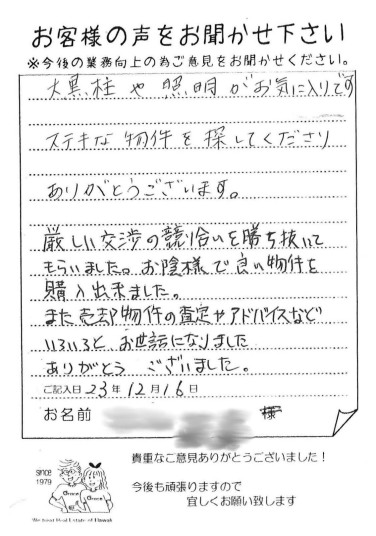 お客様の声をお聞かせ下さい
※今後の業務向上の為ご意見をお聞かせください。
大黒柱や照明がお気に入りです
ステキな物件を探してくださり
ありがとうございます。
厳しい交渉の競り合いを勝ち抜いて
もらいました。お陰様で良い物件を
購入出来ました。
また売却物件の査定やアドバイスなど
いろいろと お世話になりました
ありがとう ございました。
ご記入日 23年 12月 16日
お名前 様
貴重なご意見ありがとうございました！
since
1979
今後も頑張りますので
宜しくお願い致します
Grace
Grace
We Need Real Estate of Friends